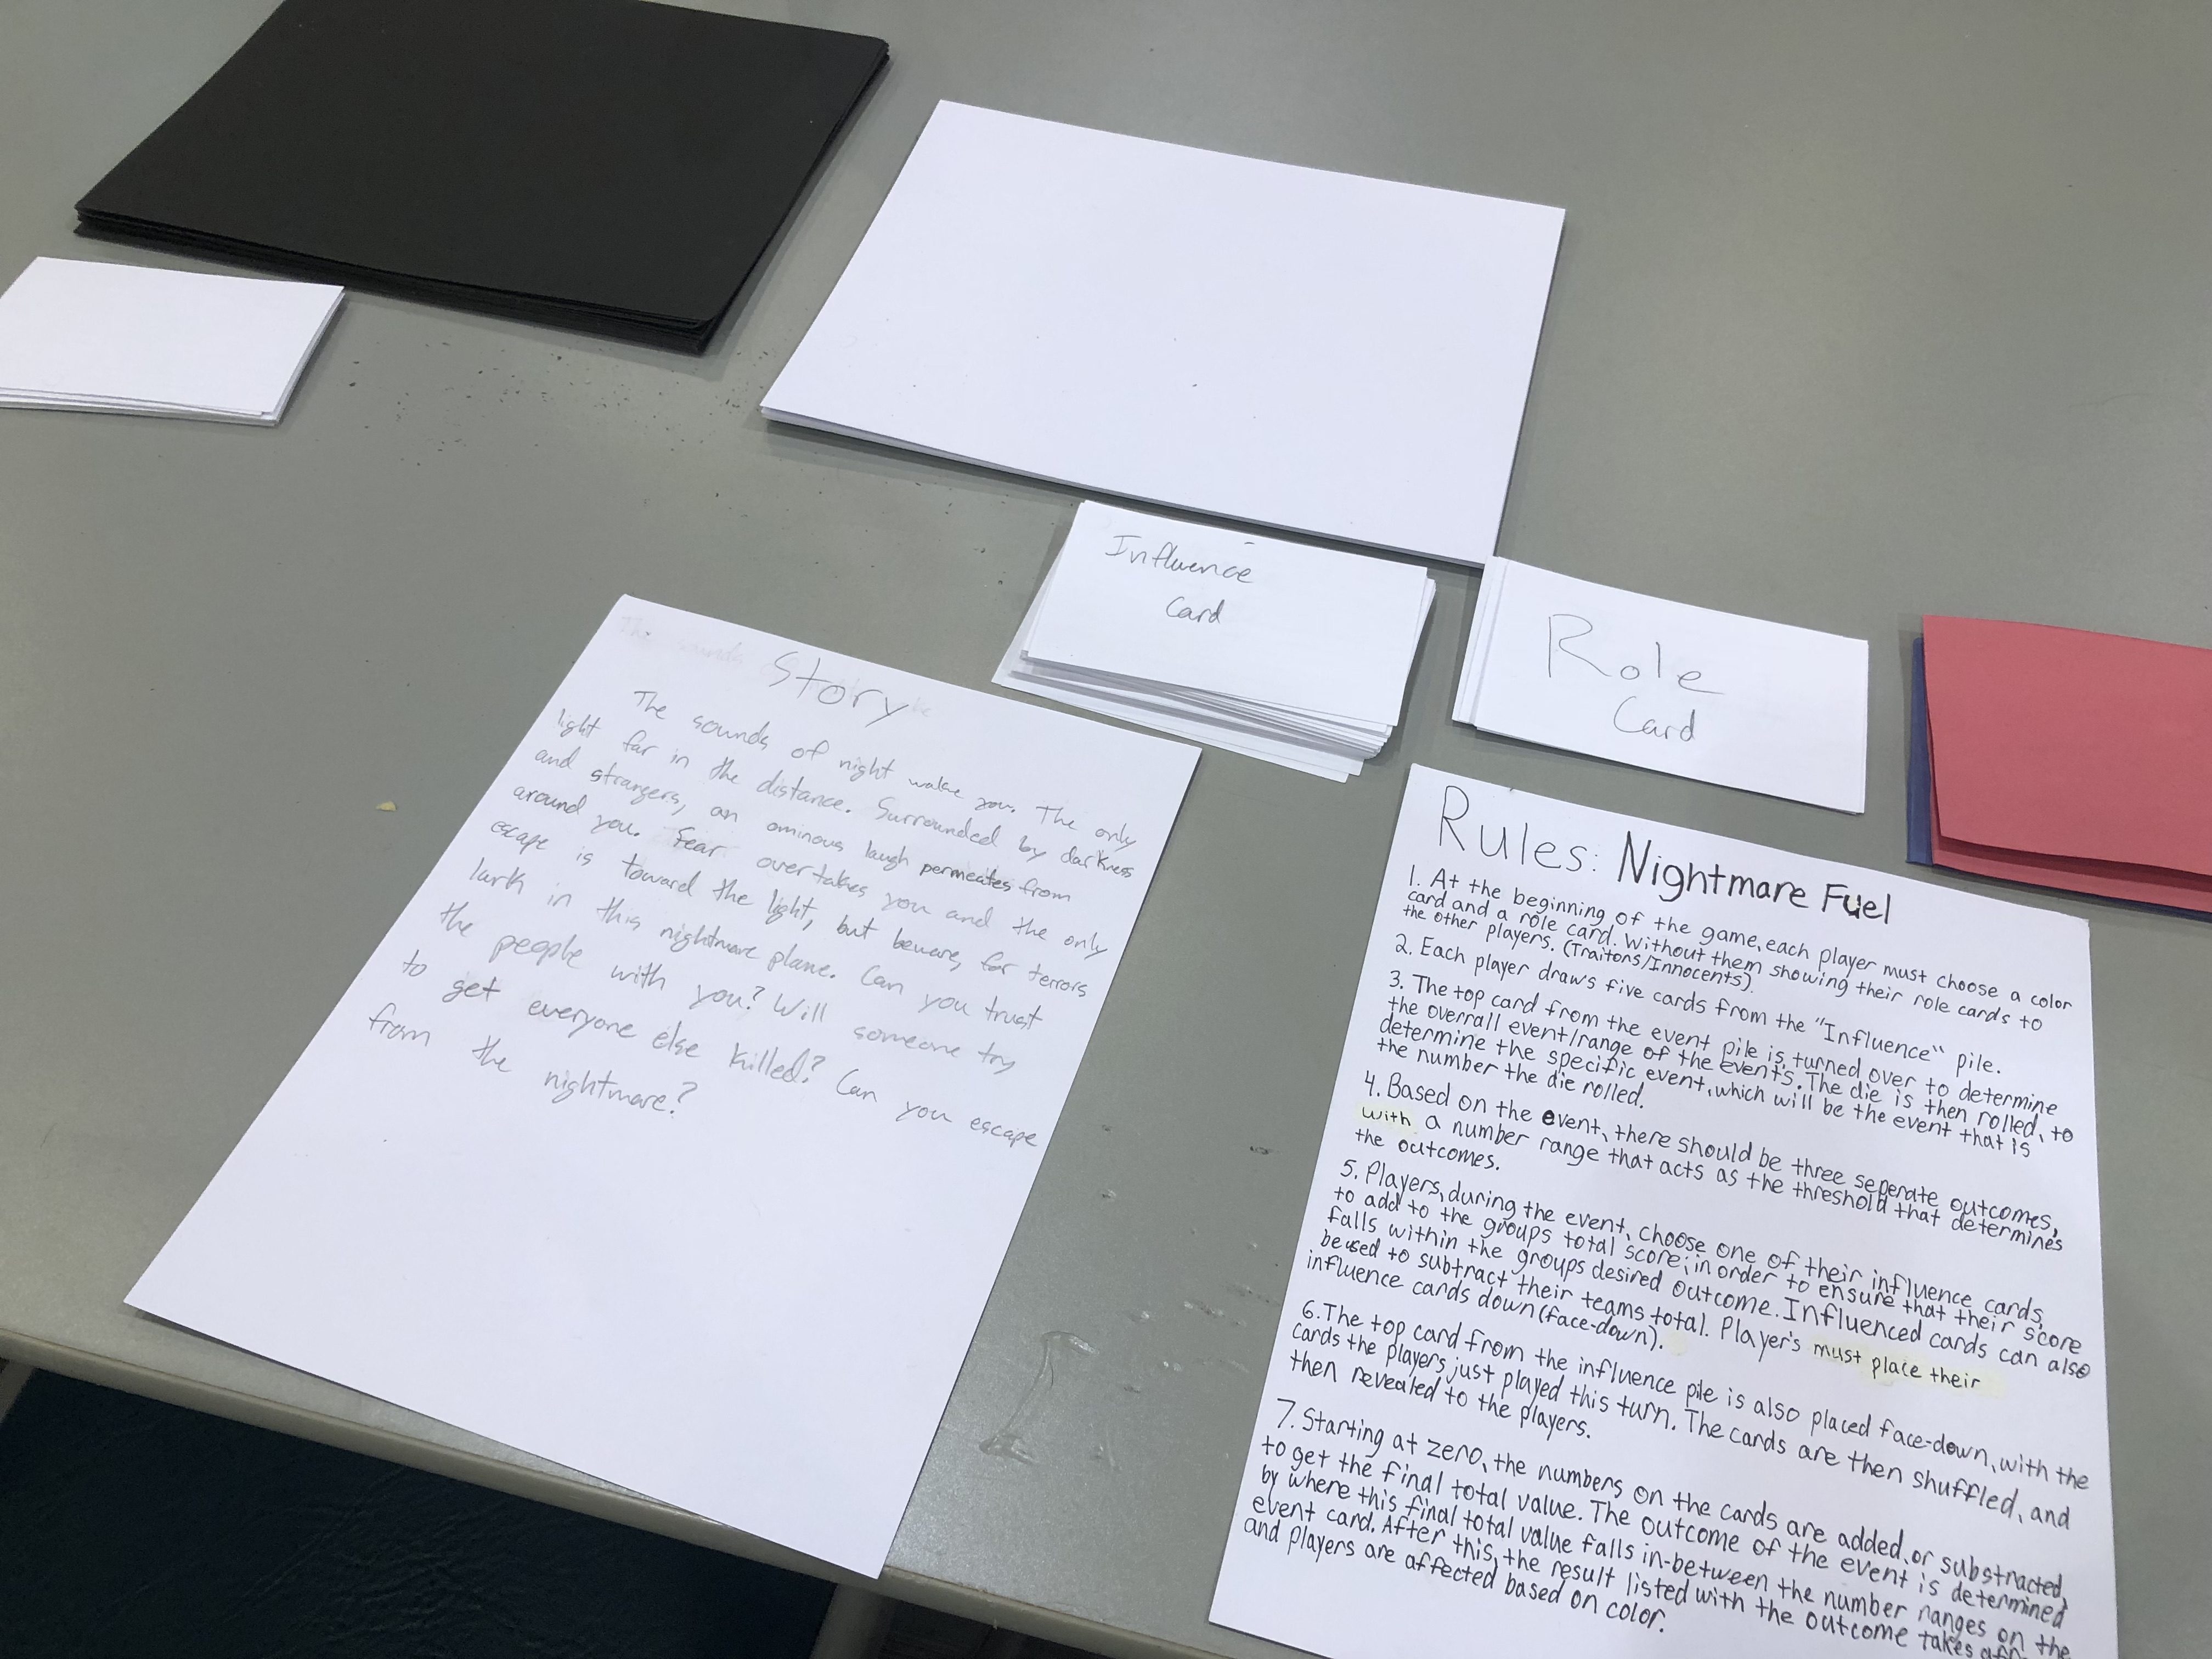 Story
The sounds of night wake you. The only
light far in the distance. Surrounded by darkness
and strangers, an ominous laugh permeates from
around you. Fear overtakes you and the only
escape is toward the light, but beware for terrors
lurk in this nightmare plane. Can you trust
the people with you? Will someone try
to get everyone else killed? Can you escape
from the nightmare?
Influence
Card
Role
Card
Rules: Nightmare Fuel
1. At the beginning of the game, each player must choose a color
card and a role card. Without them showing their role cards to
the other players. (Traitors/Innocents).
2. Each player draws five cards from the "Influence" pile.
3. The top card from the event pile is turned over to determine
the overall event/range of the events. The die is then rolled, to
determine the specific event, which will be the event that is
the number the die rolled.
4. Based on the event, there should be three seperate outcomes,
with a number range that acts as the threshold that determines
the outcomes.
5. Players, during the event, choose one of their influence cards
to add to the groups total score in order to ensure that their score
falls within the groups desired outcome. Influenced cards can also
be used to subtract their teams total. Player's must place their
influence cards down (face-down).
6. The top card from the influence pile is also placed face-down, with the
cards the players just played this turn. The cards are then shuffled, and
then revealed to the players.
7. Starting at zero, the numbers on the cards are added or substracted
to get the final total value. The outcome of the event is determined
by where this final total value falls in-between the number ranges on the
event card. After this, the result listed with the outcome takes
and players are affected based on color.